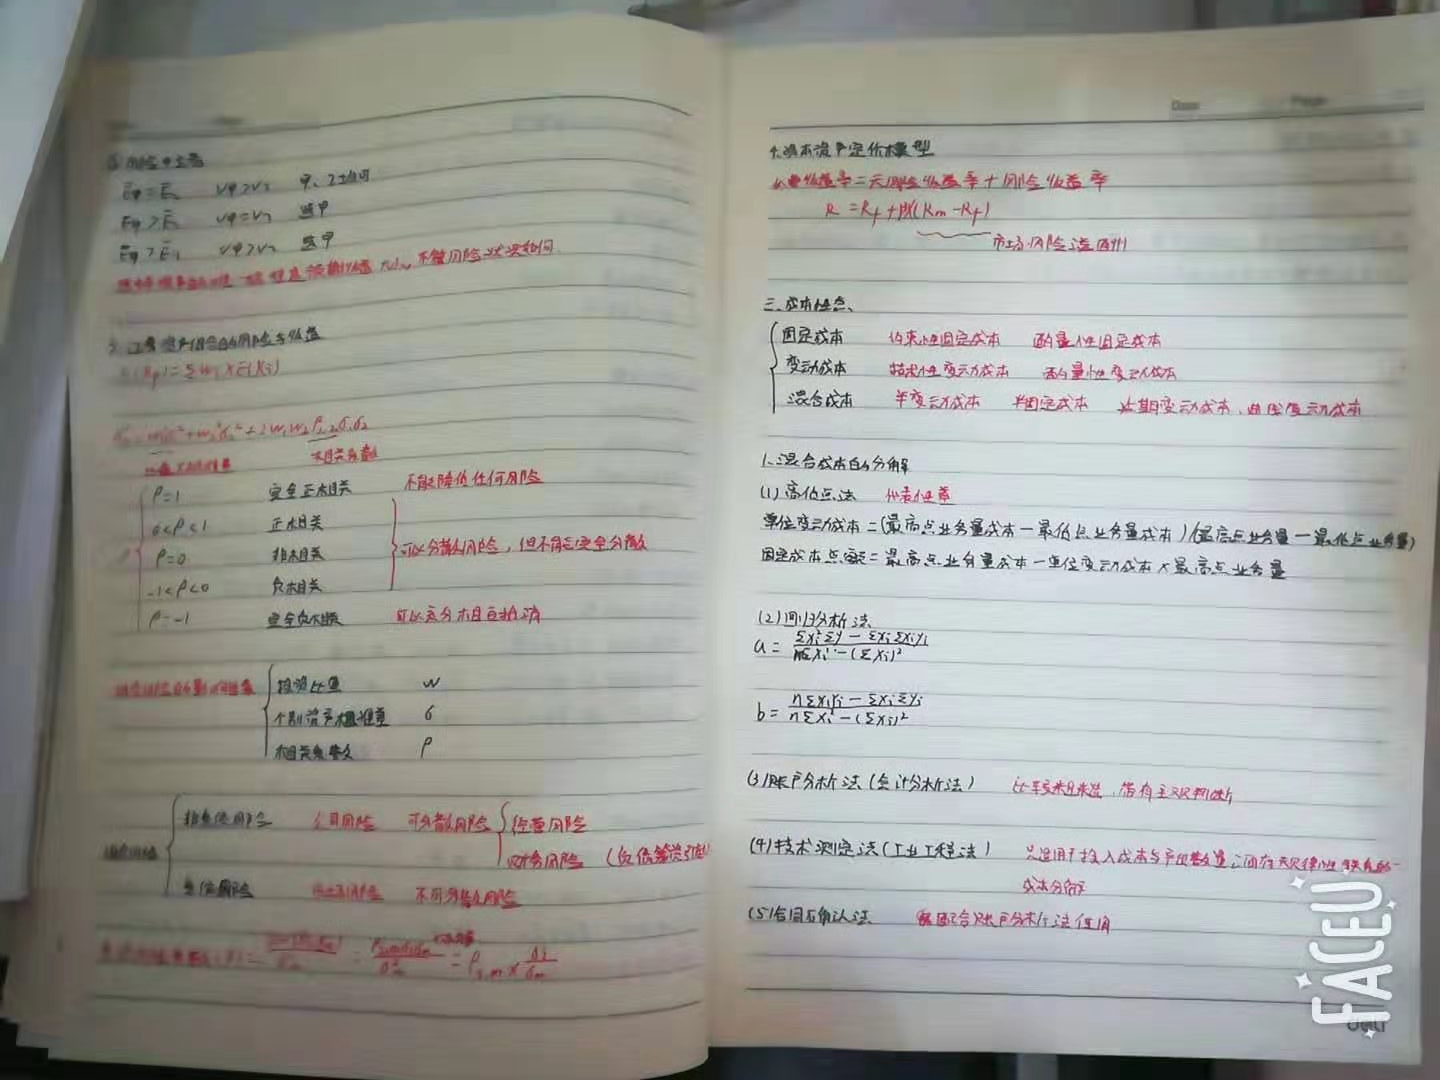 ③风险中立者
E甲=E乙 V甲>V乙 甲、乙均可
E甲>E乙 V甲=V乙 选甲
E甲>E乙 V甲>V乙 选甲
不管风险状况如何
3.证券资产组合的风险与收益
E(Rp)=ΣWi×E(Ri)
+2W1W2ρ1,2σ1σ2
相关系数
ρ=1 完全正相关 不能降低任何风险
0<ρ<1 正相关
ρ=0 非相关 可以分散风险,但不能完全分散
-1<ρ<0 负相关
ρ=-1 完全负相关 可以充分相互抵消
组合风险的影响因素 投资比重 W
个别资产标准差 σ
相关系数 ρ
非系统风险 公司风险 可分散风险 经营风险
组合风险 财务风险
系统风险 市场风险 不可分散风险
= ρi,m × σi/σm
Date Page
4.资本资产定价模型
必要收益率=无风险收益率+风险收益率
R=Rf+β×(Rm-Rf)
市场风险溢酬
三.成本性态
固定成本 约束性固定成本 酌量性固定成本
变动成本 技术性变动成本 酌量性变动成本
混合成本 半变动成本 半固定成本 延期变动成本、曲线变动成本
1.混合成本的分解
(1)高低点法 代表性差
单位变动成本=(最高点业务量成本-最低点业务量成本)/(最高点业务量-最低点业务量)
固定成本总额=最高点业务量成本-单位变动成本×最高点业务量
(2)回归分析法
a= (Σxi²Σyi-ΣxiΣxiyi)/(nΣxi²-(Σxi)²)
b= (nΣxiyi-ΣxiΣyi)/(nΣxi²-(Σxi)²)
(3)账户分析法(会计分析法) 比较粗糙,带有主观判断
(4)技术测定法(工业工程法) 只适用于投入成本与产出数量之间有规律性联系的
成本分解
(5)合同确认法 配合账户分析法使用
FACEU
deli